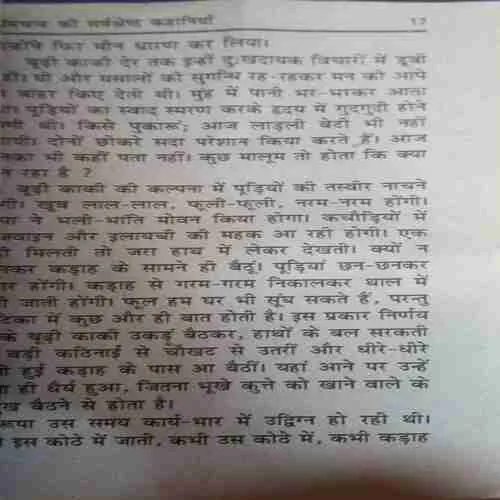 की सर्वश्रेष्ठ कहानियाँ 17
फिर मौन धारण कर लिया।
बूढ़ी काकी देर तक इन्हीं दुःखदायक विचारों में डूबी
रहीं। घी और मसालों की सुगन्धि रह-रहकर मन को आपे
बाहर किए देती थी। मुंह में पानी भर-भरकर आता
पूड़ियों का स्वाद स्मरण करके हृदय में गुदगुदी होने
थी। किसे पुकारू; आज लाड़ली बेटी भी नहीं
दोनों छोकरे सदा परेशान किया करते हैं। आज
का भी कहीं पता नहीं। कुछ मालूम तो होता कि क्या
रहा है ?
बूढ़ी काकी की कल्पना में पूड़ियों की तस्वीर नाचने
खूब लाल-लाल, फूली-फूली, नरम-नरम होंगी।
ने भली-भांति मोवन किया होगा। कचौड़ियों में
और इलायची की महक आ रही होगी। एक
मिलती तो जरा हाथ में लेकर देखती। क्यों न
कड़ाह के सामने ही बैठूं। पूड़ियां छन-छनकर
होंगी। कड़ाह से गरम-गरम निकालकर थाल में
जाती होंगी। फूल हम घर भी सूंघ सकते हैं, परन्तु
में कुछ और ही बात होती है। इस प्रकार निर्णय
के बूढ़ी काकी उकड़ूं बैठकर, हाथों के बल सरकती
बड़ी कठिनाई से चौखट से उतरीं और धीरे-धीरे
हुई कड़ाह के पास आ बैठीं। यहां आने पर उन्हें
ही धैर्य हुआ, जितना भूखे कुत्ते को खाने वाले के
बैठने से होता है।
रूपा उस समय कार्य-भार में उद्विग्न हो रही थी।
इस कोठे में जाती, कभी उस कोठे में, कभी कड़ाह